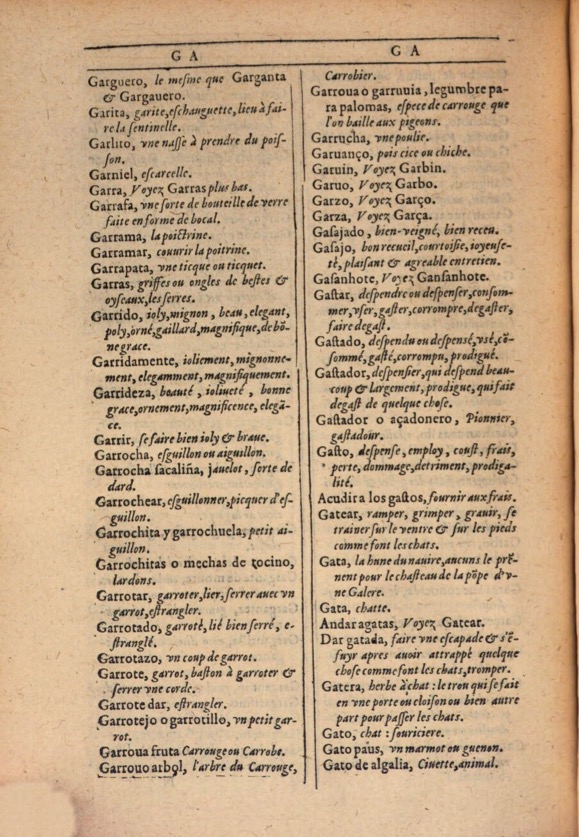 G A
Garguero, le meſme que Garganta
& Gargauero.
Garita, garite, eſchauguette, lieu à fai-
re la ſentinelle.
Garlito, vne naſſe à prendre du poiſ-
ſon.
Garniel, eſcarcelle.
Garra, Voyez Garras plus bas.
Garrafa, vne ſorte de bouteille de verre
faite en forme de bocal.
Garrama, la poictrine.
Garramar, couurir la poitrine.
Garrapata, vne ticque ou ticquet.
Garras, griffes ou ongles de beſtes &
oyſeaux, les ſerres.
Garrido, ioly, mignon, beau, elegant,
poly, orné, gaillard, magnifique, de bõ-
ne grace.
Garridamente, ioliement, mignonne-
ment, elegamment, magnifiquement.
Garrideza, beauté, ioliueté, bonne
grace, ornement, magnificence, elegã-
ce.
Garrir, ſe faire bien ioly & braue.
Garrocha, eſguillon ou aiguillon.
Garrocha ſacaliña, jauelot, ſorte de
dard.
Garrochear, eſguillonner, picquer d'eſ-
guillon.
Garrochita y garrochuela, petit ai-
guillon.
Garrochitas o mechas de tocino,
lardons.
Garrotar, garroter, lier, ſerrer auec vn
garrot, eſtrangler.
Garrotado, garroté, lié bien ſerré, e-
ſtranglé.
Garrotazo, vn coup de garrot.
Garrote, garrot, baſton à garroter &
ſerrer vne corde.
Garrote dar, eſtrangler.
Garrotejo o garrotillo, vn petit gar-
rot.
Garroua fruta Carrouge ou Carrobe.
Garrouo arbol, l'arbre du Carrouge,
G A
Carrobier.
Garroua o garruuia, legumbre pa-
ra palomas, eſpece de carrouge que
l'on baille aux pigeons.
Garrucha, vne poulie.
Garuanço, pois cice ou chiche.
Garuin, Voyez Garbin.
Garuo, Voyez Garbo.
Garzo, Voyez Garço.
Garza, Voyez Garça.
Gaſajado, bien-veigné, bien receu.
Gaſajo, bon recueil, courtoiſie, ioyeuſe-
té, plaiſant & agreable entretien.
Gaſanhote, Voyez Ganſanhote.
Gaſtar, deſpendre ou deſpenſer, conſom-
mer, vſer, gaſter, corrompre, degaſter,
faire degaſt.
Gaſtado, deſpendu ou deſpensé, vsé, cõ-
ſommé, gaſté, corrompu, prodigué.
Gaſtador, deſpenſier, qui deſpend beau-
coup & largement, prodigue, qui fait
degaſt de quelque choſe.
Gaſtador o açadonero, Pionnier,
gaſtadour.
Gaſto, deſpenſe, employ, couſt, frais,
perte, dommage, detriment, prodiga-
lité.
Acudir a los gaſtos, fournir aux frais.
Gatear, ramper, grimper, grauir, ſe
trainer ſur le ventre & ſur les pieds
comme font les chats.
Gata, la hune du nauire, aucuns le prẽ-
nent pour le chaſteau de la põpe d'v-
ne Galere.
Gata, chatte.
Andar a gatas, Voyez Gatear.
Dar gatada, faire vne eſcapade & s'ẽ-
fuyr apres auoir attrappé quelque
choſe comme font les chats, tromper.
Gatera, herbe à chat: le trou qui ſe fait
en vne porte ou cloiſon ou bien autre
part pour paſſer les chats.
Gato, chat: ſouriciere.
Gato paùs, vn marmot ou guenon.
Gato de algalia, Ciuette, animal.